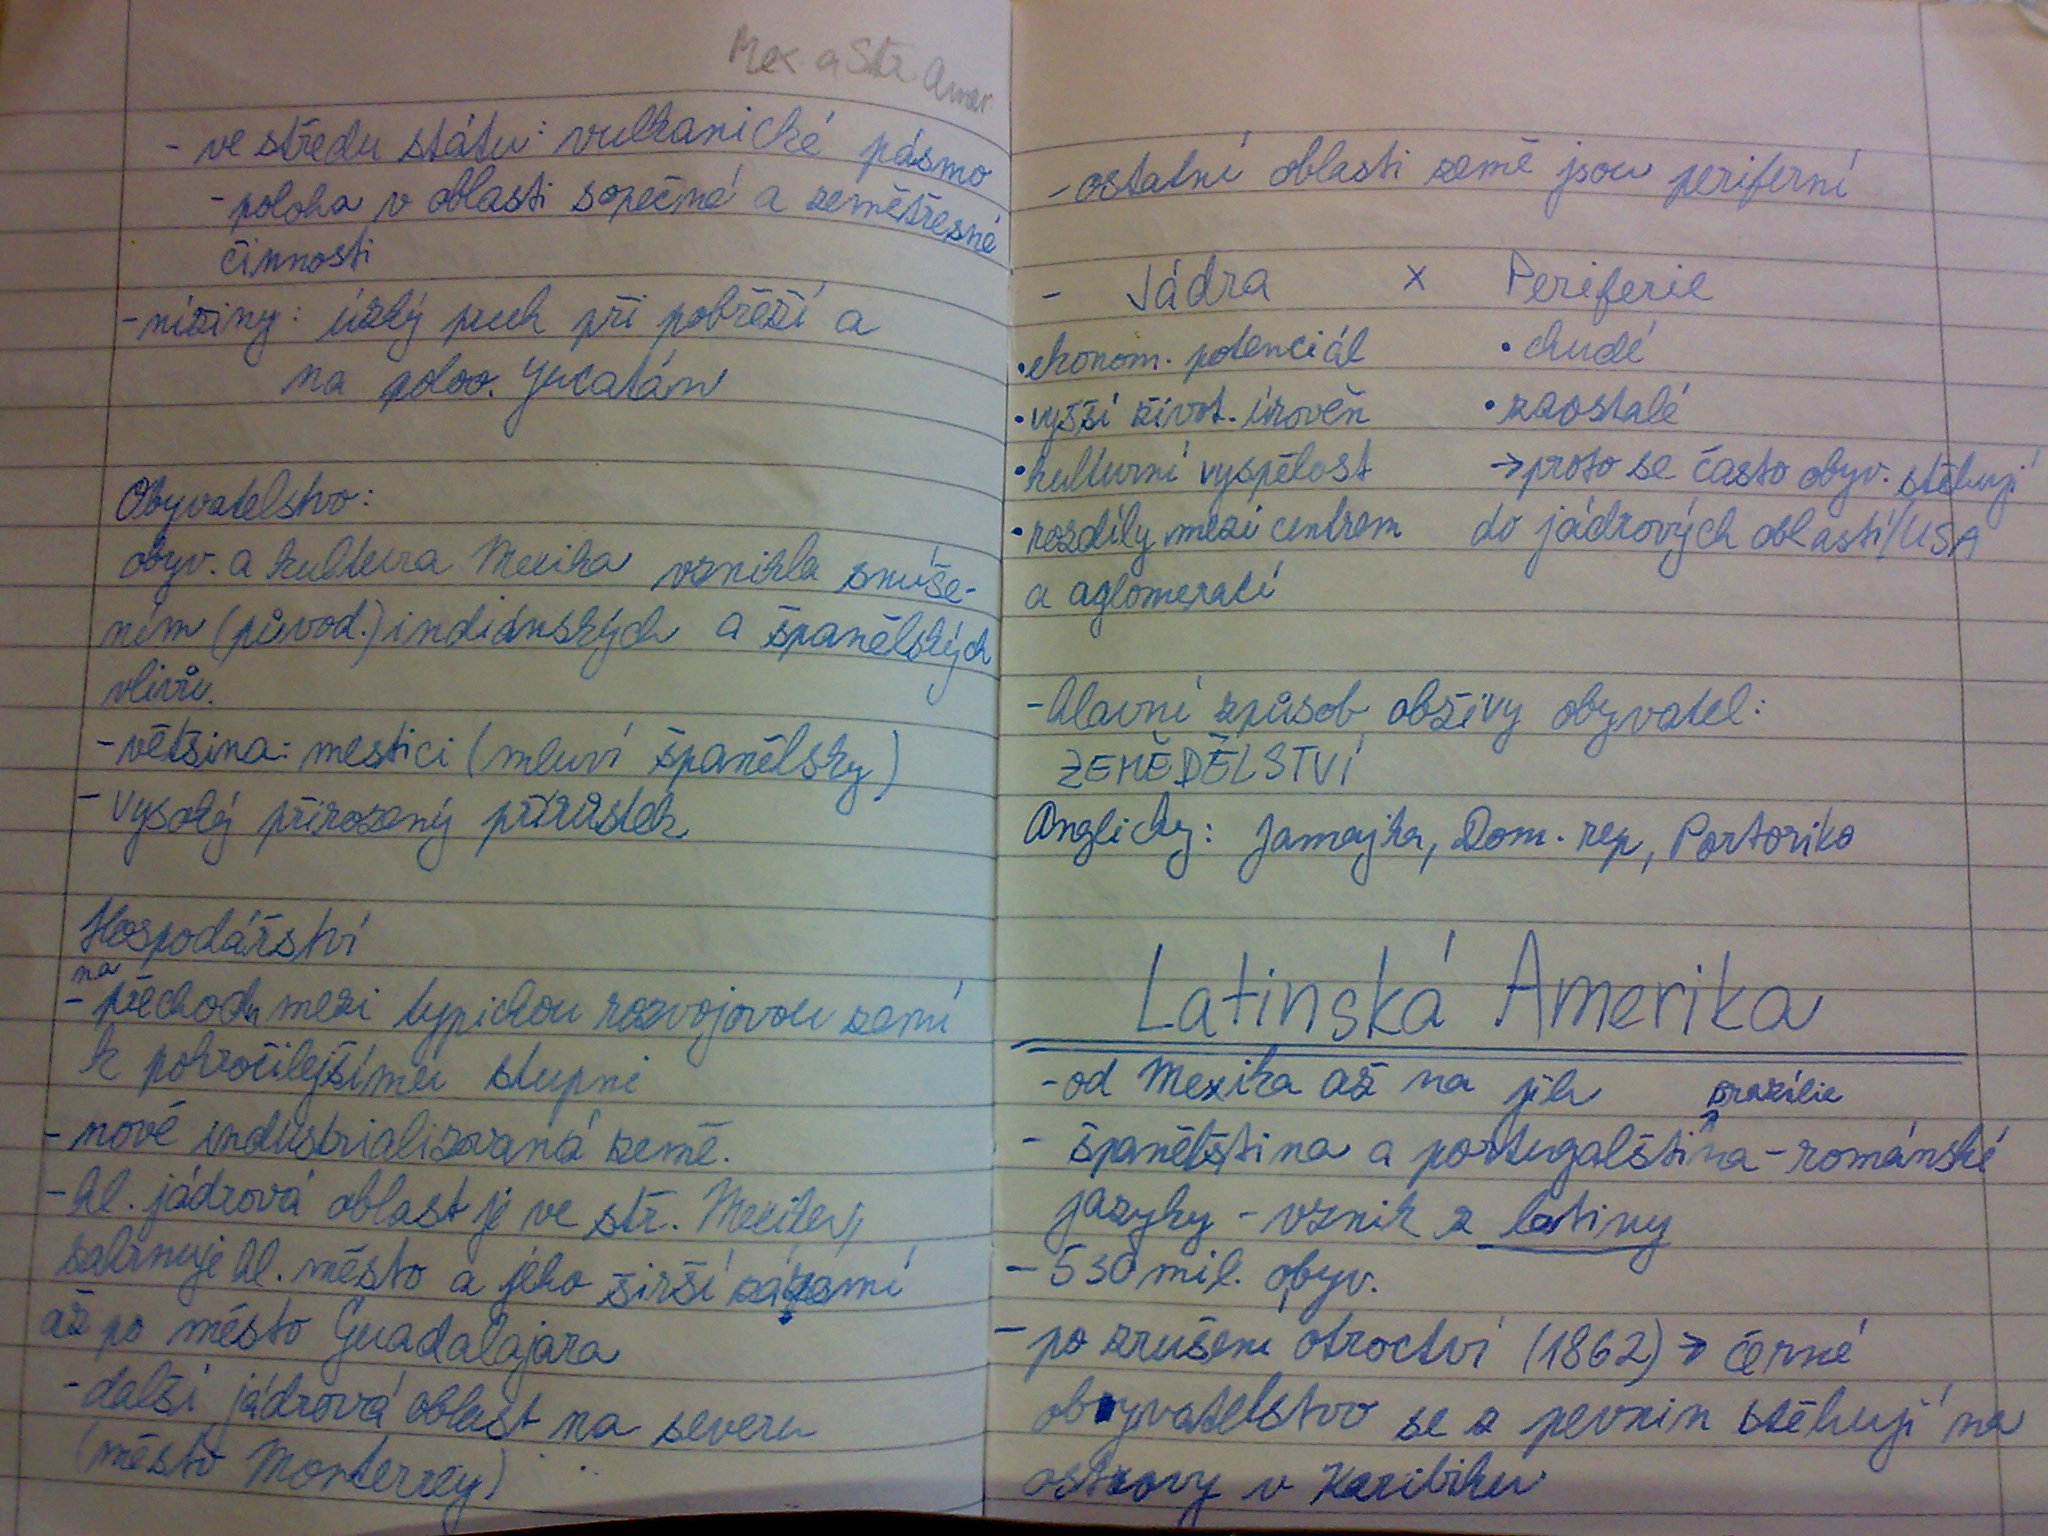 Mex. a Stř. Amer.
- ve středu státu: vulkanické pásmo
- poloha v oblasti sopečné a zemětřesné
činnosti
- nížiny: úzký pruh při pobřeží a
na poloo. Yucatán
Obyvatelstvo:
obyv. a kultura Mexika vznikla smíše-
ním (původ.) indiánských a španělských
vlivů.
- většina: mestici (mluví španělsky)
- vysoký přirozený přírůstek
Hospodářství
na
- přechodu mezi typickou rozvojovou zemí
k pokročilejšímu stupni
- nově industrializovaná země.
- hl. jádrová oblast je ve stř. Mexiku,
zahrnuje hl. město a jeho širší zázemí
až po město Guadalajara
- další jádrová oblast na severu
(město Monterrey)
- ostatní oblasti země jsou periferní
- Jádra x Periferie
• ekonom. potenciál • chudé
• vyšší život. úroveň • zaostalé
• kulturní vyspělost → proto se často obyv. stěhují
• rozdíly mezi centrem do jádrových oblastí/USA
a aglomerací
- hlavní způsob obživy obyvatel:
ZEMĚDĚLSTVÍ
Anglicky: Jamajka, Dom. rep, Portoriko
Latinská Amerika
- od Mexika až na jih
Brazílie
- španělština a portugalština - románské
jazyky - vznik z latiny
- 530 mil. obyv.
- po zrušení otroctví (1862) → černé
obyvatelstvo se z pevnin stěhují na
ostrovy v Karibiku